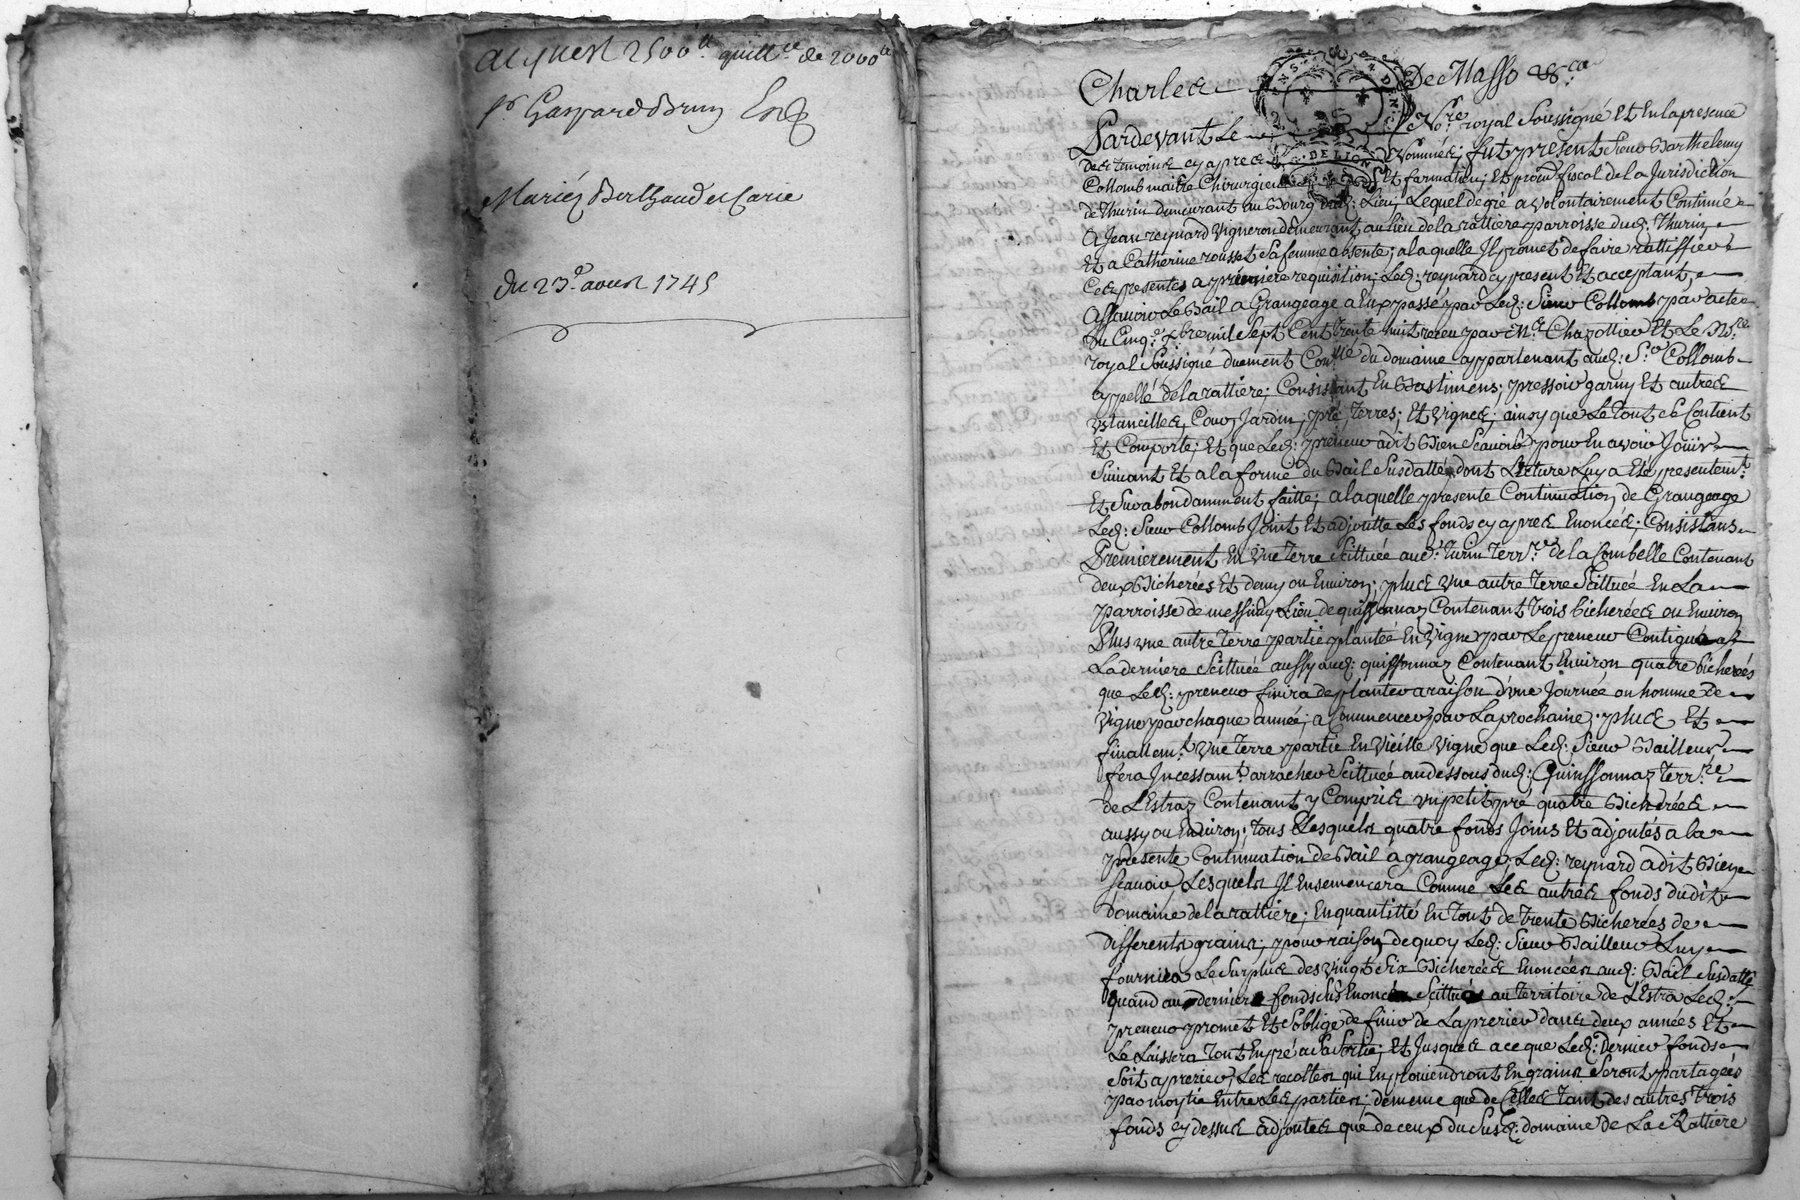 acquest 2500ᵗᵗ quittᶜᵉ de 2000ᵗᵗ
pʳ Gaspard Brun Et
Mariez Berthaud et Carie
du 23ᵉ avril 1745
Charles De Masso &cᵃ
Pardevant Le Noʳᵉ royal Soussigné Et En la presence
des temoins cy apres Nommés; fut present Sieur Barthelemy
Collomb maitre Chirurgien Et procuʳ fiscal de la Jurisdiction
de Thurin demeurant au Bourg dud: Lieu, Lequel de gré a volontairement Continüé
A Jean reynard vigneron demeurant au lieu de la rattiere parroisse dud: Thurin
Et a Catherine rousset Sa femme absente; a laquelle Il promet de faire rattiffier
Ces presentes a premiere requisition; Led: reynard cy present Et acceptant,
Assavoir Le Bail a Grangeage a Eux passé par Led: Sieur Collomb par acte
du Cinq: xbre mil Sept Cent trente huit receu par Mᵉ Chazottier Et Le Noʳᵉ
royal Soussigné duement Conˡˡé du domaine appartenant aud: Sʳ Collomb
appellé de la rattiere; Consistant En Bastimens, pressoir garny Et autres
Ustancilles, Cour, Jardin, pré, terres, Et vignes; ainsy que Le tout Se Contient
Et Comporte; Et que Led: preneur a dit Bien Scavoir pour En avoir Joüir
Suivant Et a la forme du Bail Susdatté dont Lecture Luy a Eté presentemᵗ
Et Surabondamment faitte; a laquelle presente Continuation de Grangeage
Led: Sieur Collomb Joint Et adjoutte Les fonds cy apres Enoncés; Consistans
Premierement En Une terre Scittuée aud: turin terrʳᵉ de la Combelle Contenant
deux Bicherées Et demy ou Environ; plus Une autre terre Scittuée En La
parroisse de messimy Lieu de quissonnaz Contenant trois bicherées ou Environ
Plus Une autre terre partie plantée En Vigne par Le preneur Contigue a
La derniere Scittuée aussy aud: quissonnaz Contenant Environ quatre bicherées
que Led: preneur finira de planter a raison d'Une Journée ou homme de
Vigne par chaque année, a Commencer par La prochaine, plus Et
finallemᵗ Une terre partie En Vieille Vigne que Led: Sieur Bailleur
fera Incessamᵗ arracher Scittuée au dessous dud: Quinssonnaz terrʳᵉ
de L'Estraz Contenant y Compris Un petit pré quatre Bicherées
aussy ou Environ; tous Lesquels quatre fonds Joins Et adjoutés a la
presente Continuation de Bail a grangeage, Led: reynard a dit Bien
Scavoir Lesquels Il Ensemencera Comme Les autres fonds dudit
Domaine de la rattiere, En quantitté En tout de trente Bicherées de
differents grains, pour raison de quoy Led: Sieur Bailleur Luy
fournira Le Surplus des vingt Six Bicherées Enoncées aud: Bail Susdatté
quand au dernier fonds Sus Enoncé Scittué au territoire de L'Estra Led:
preneur promet Et S'oblige de finir de La prerier dans deux années Et
Le Laissera tout En pré a Sa Sortie; Et Jusques a ce que Led: Dernier fonds
Soit a prerier, Les recoltes qui En proviendront En grains Seront partagées
par moytié Entre Les parties; de meme que de Celles tant des autres trois
fonds cy dessus adjoutés que de ceux du Susd: domaine de La Rattiere